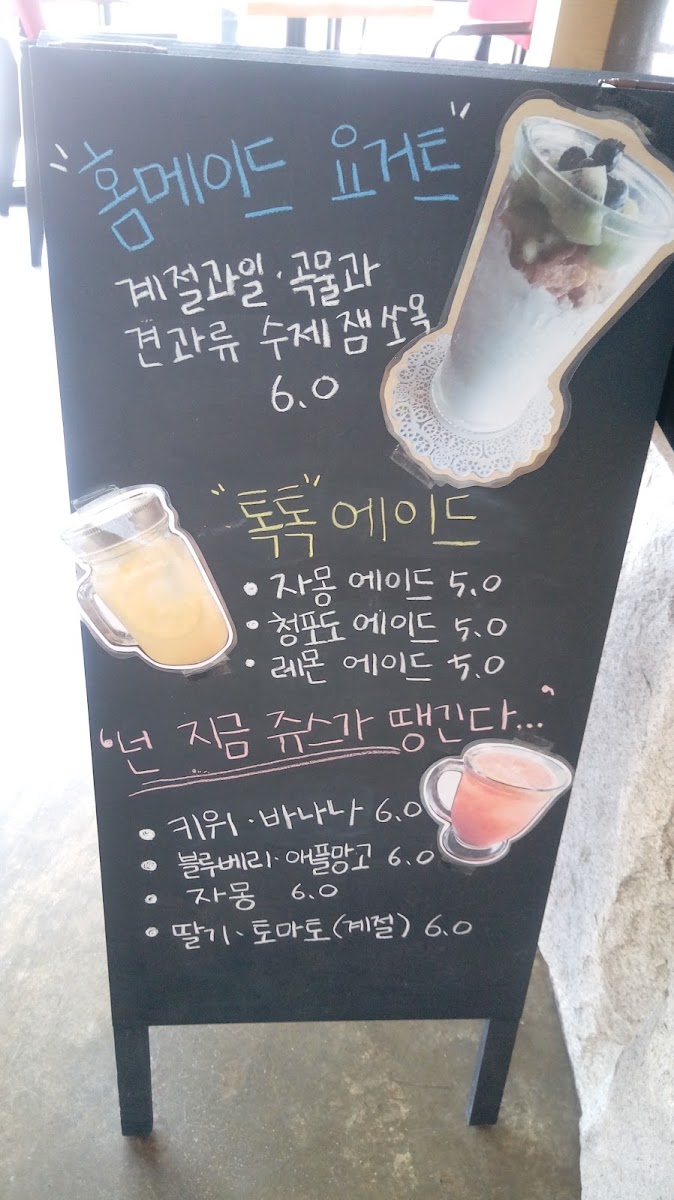 "홈메이드 요거트"
계절과일·곡물과
견과류 수제잼 쏘옥
6.0
"톡톡" 에이드
• 자몽 에이드 5.0
• 청포도 에이드 5.0
• 레몬 에이드 5.0
"넌 지금 쥬스가 땡긴다..."
• 키위·바나나 6.0
• 블루베리·애플망고 6.0
• 자몽 6.0
• 딸기·토마토(계절) 6.0